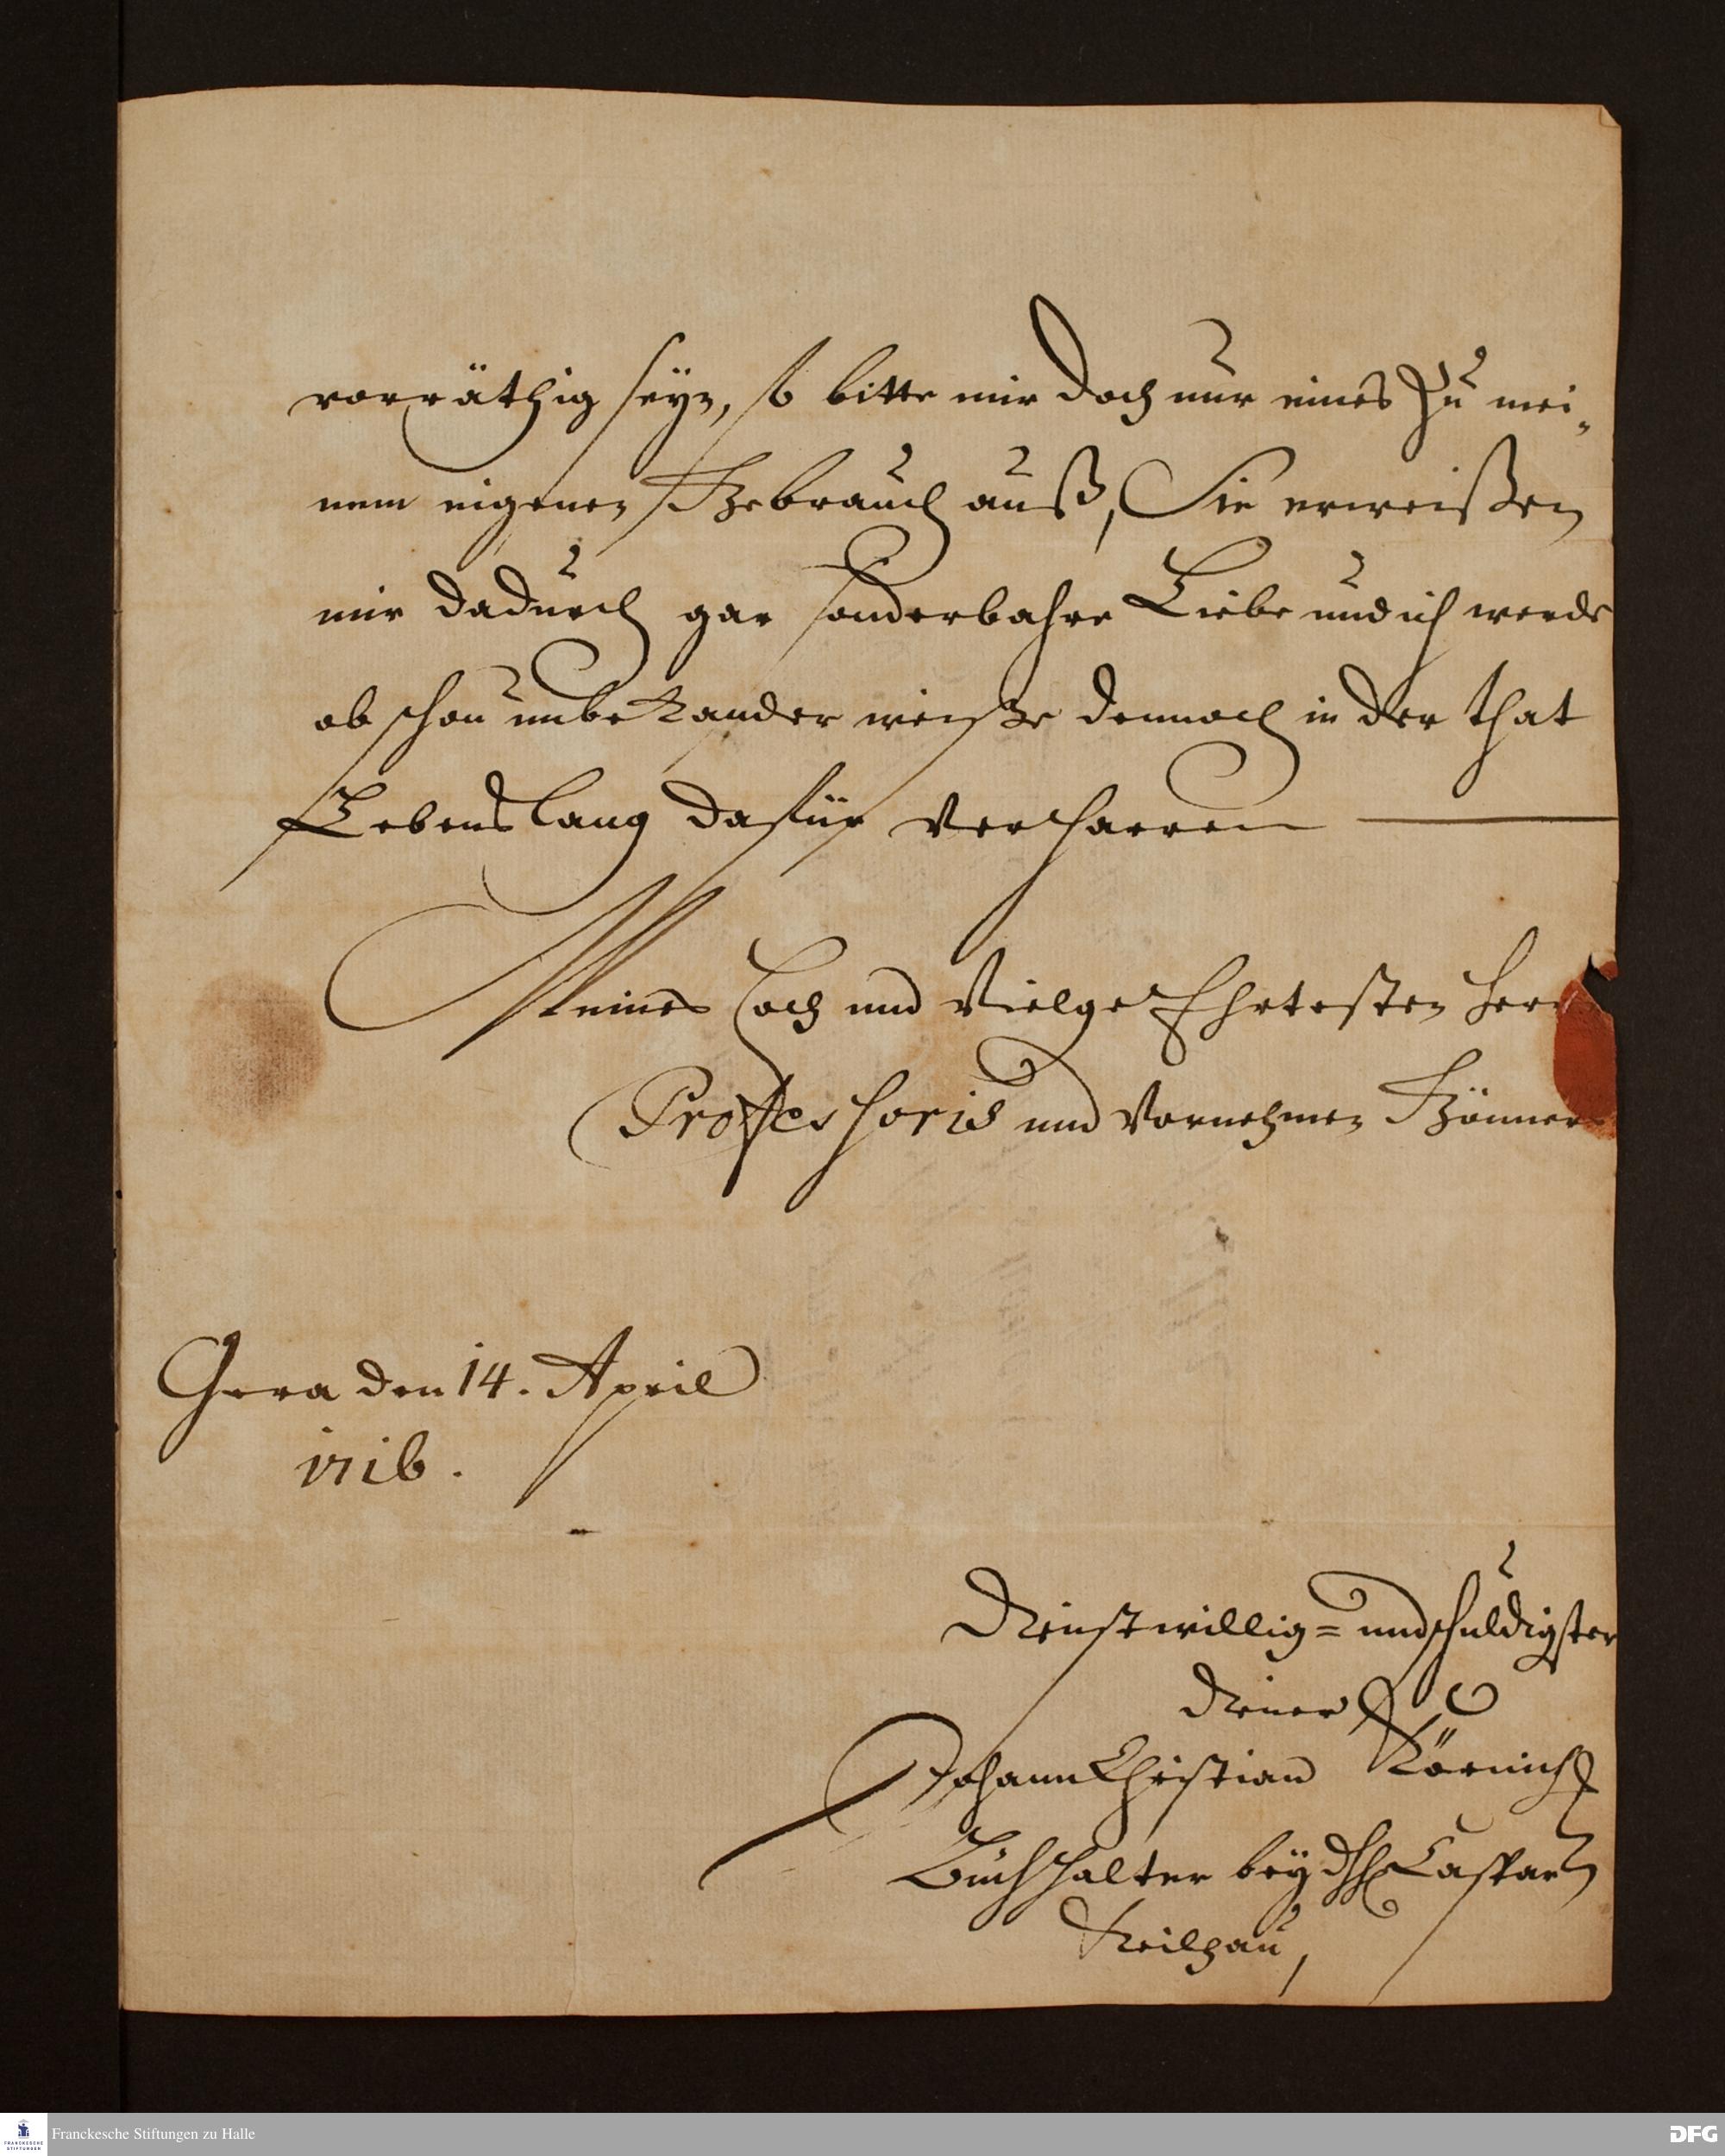 vorräthig seyn, so bitte mir doch nur eines zu mei„
nem eigenen Gebrauch auß, Sie erweißen
mir dadurch gar sonderbahre Liebe und ich werde
ob schon unbekander weiße dennoch in der that
Lebenslang dafür verharren
Meines Hoch und VielgeEhrtesten Herr
Professoris und Vornehmen Gönner
Gera den 14. April
1716.
Dienstwillig= und schuldigster
diener
Johann Christian Körnich
Buchhalter bey Caspar
Keilhau,
Franckesche Stiftungen zu Halle
FRANCKESCHE STIFTUNGEN
DFG